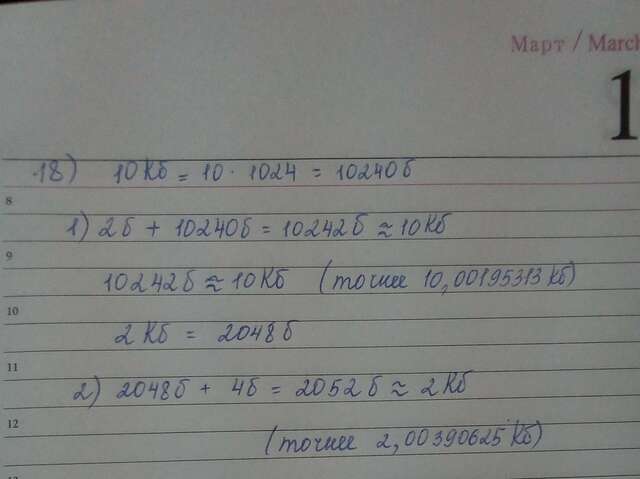 Март / March
1
18) 10Кб = 10 · 1024 = 10240б
8
1) 2б + 10240б = 10242б ≈ 10Кб
9
10242б ≈ 10Кб (точнее 10,00195313 Кб)
10
2Кб = 2048б
11
2) 2048б + 4б = 2052б ≈ 2Кб
12
(точнее 2,00390625 Кб)